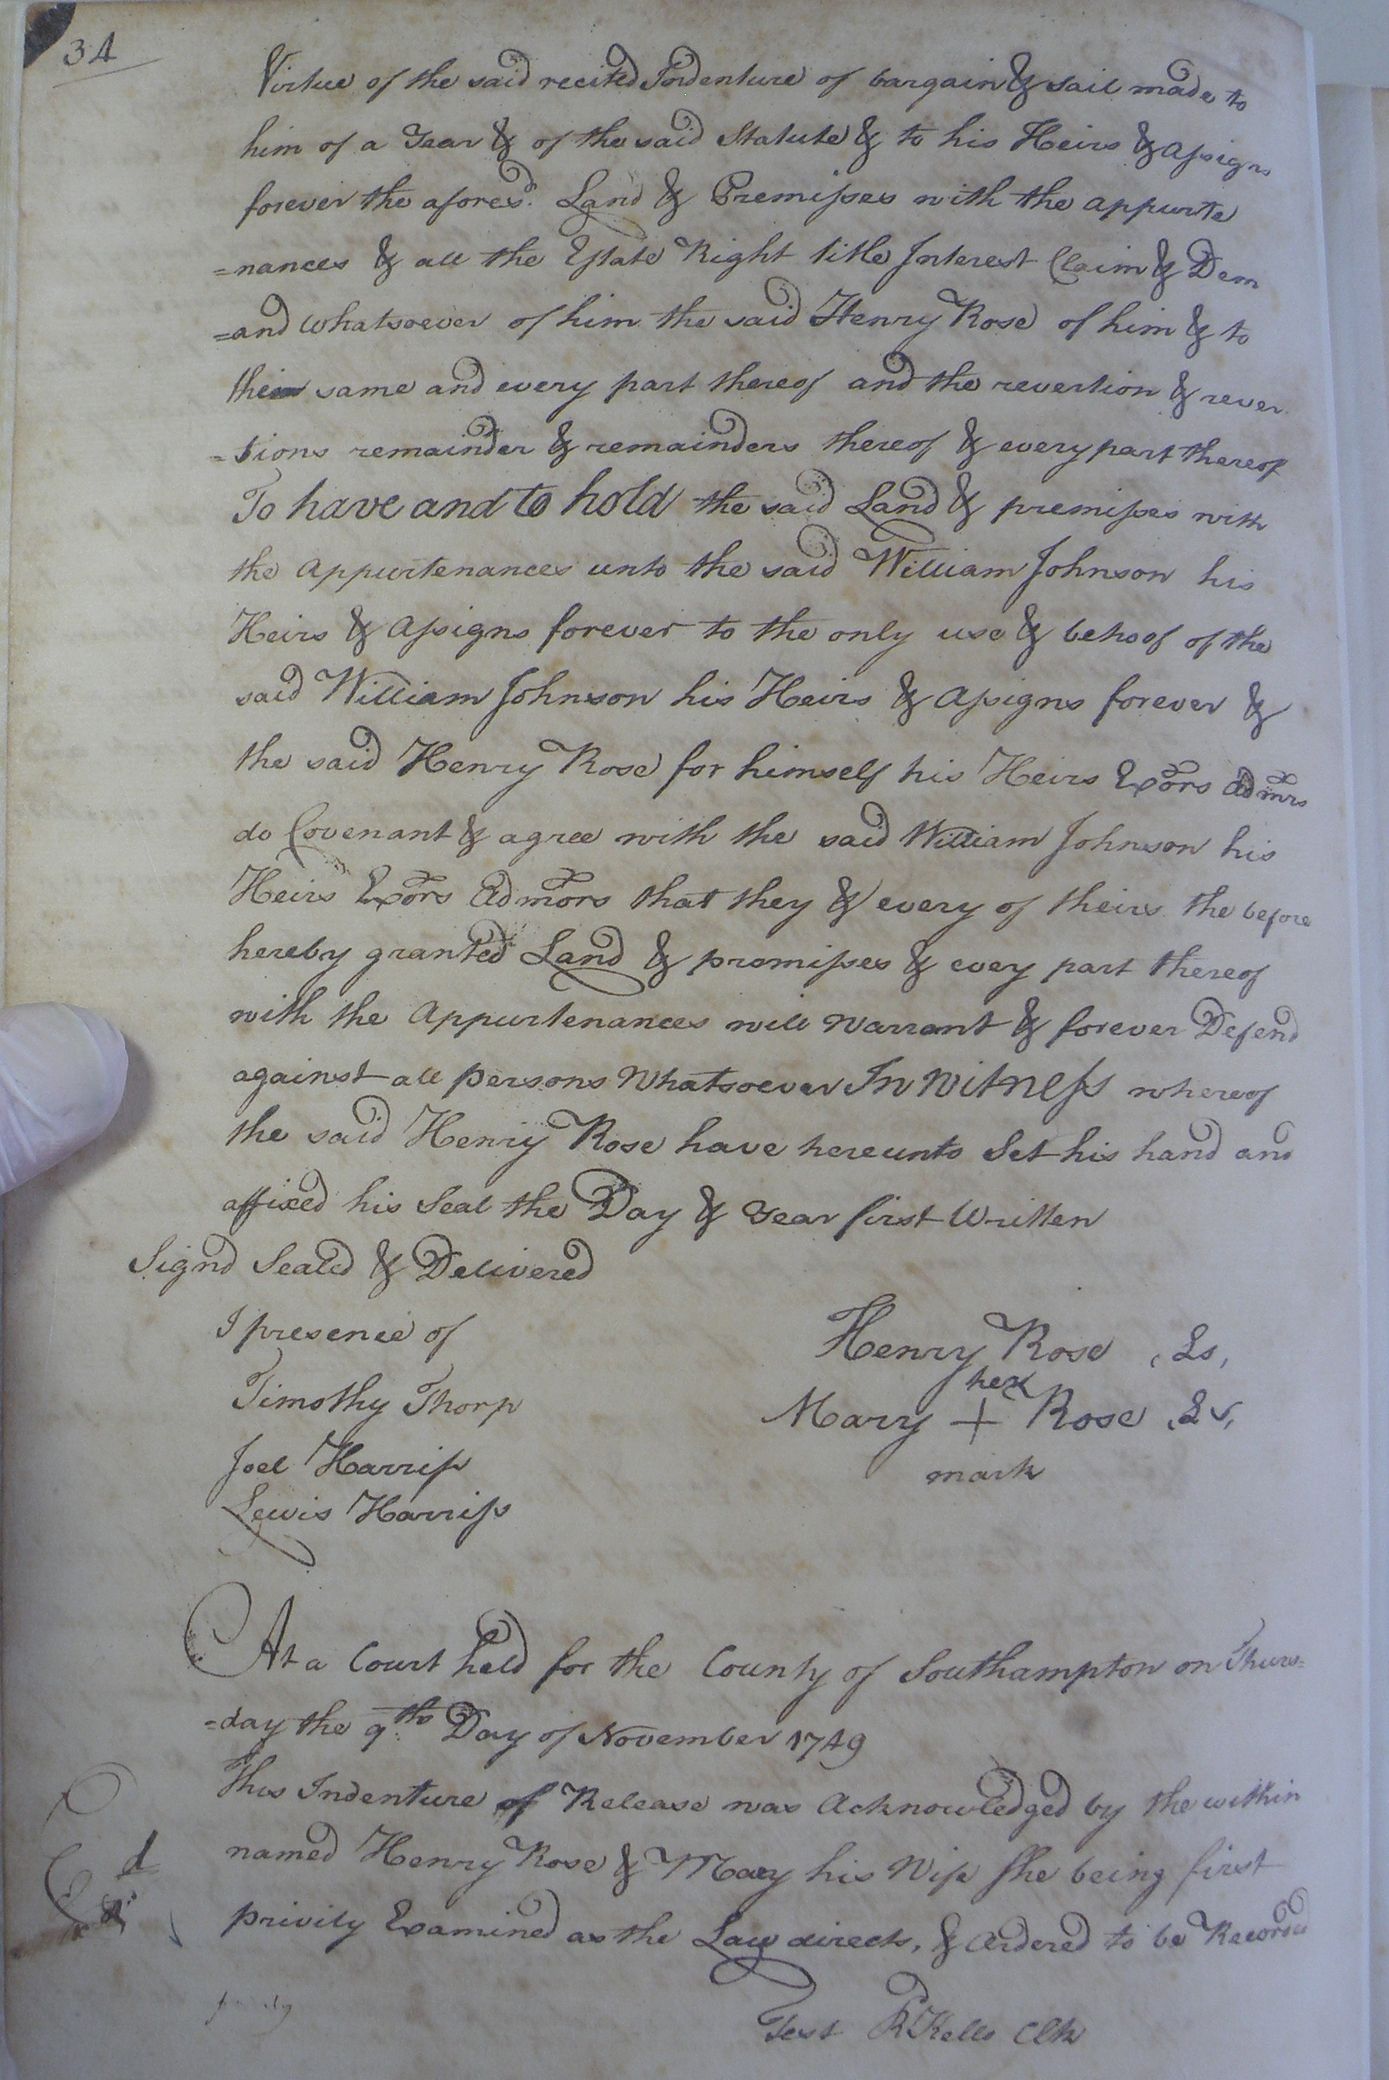 34
Virtue of the said recited Indenture of bargain & sail made to
him of a Year & of the said Statute & to his Heirs & Assigns
forever the afores.d Land & Premisses with the appurte
=nances & all the Estate Right title Interest Claim & Dem
=and whatsoever of him the said Henry Rose of him & to
the same and every part thereof and the revertion & rever
=tions remainder & remainders thereof & every part thereof
To have and to hold the said Land & premisses with
the Appurtenances unto the said William Johnson his
Heirs & Assigns forever to the only use & behoof of the
said William Johnson his Heirs & Assigns forever &
the said Henry Rose for himself his Heirs Exors Admrs
do Covenant & agree with the said William Johnson his
Heirs Exors Admors that they & every of theirs the before
hereby granted Land & promisses & evey part thereof
with the Appurtenances will warrant & forever Defend
against all persons Whatsoever In Witness whereof
the said Henry Rose have hereunto Set his hand and
affixed his Seal the Day & Year first Written
Signd Seald & Delivered
I presence of
Henry Rose (Ls)
Timothy Thorp
her
Mary + Rose (Ls)
Joel Harriss
mark
Lewis Harriss
At a Court held for the County of Southampton on Thurs=
=day the 9th Day of November 1749
This Indenture of Release was Acknowledged by the within
named Henry Rose & Mary his Wife She being first
privily Examined as the Law directs, & Ordered to be Recorded
Test R Kello Clk